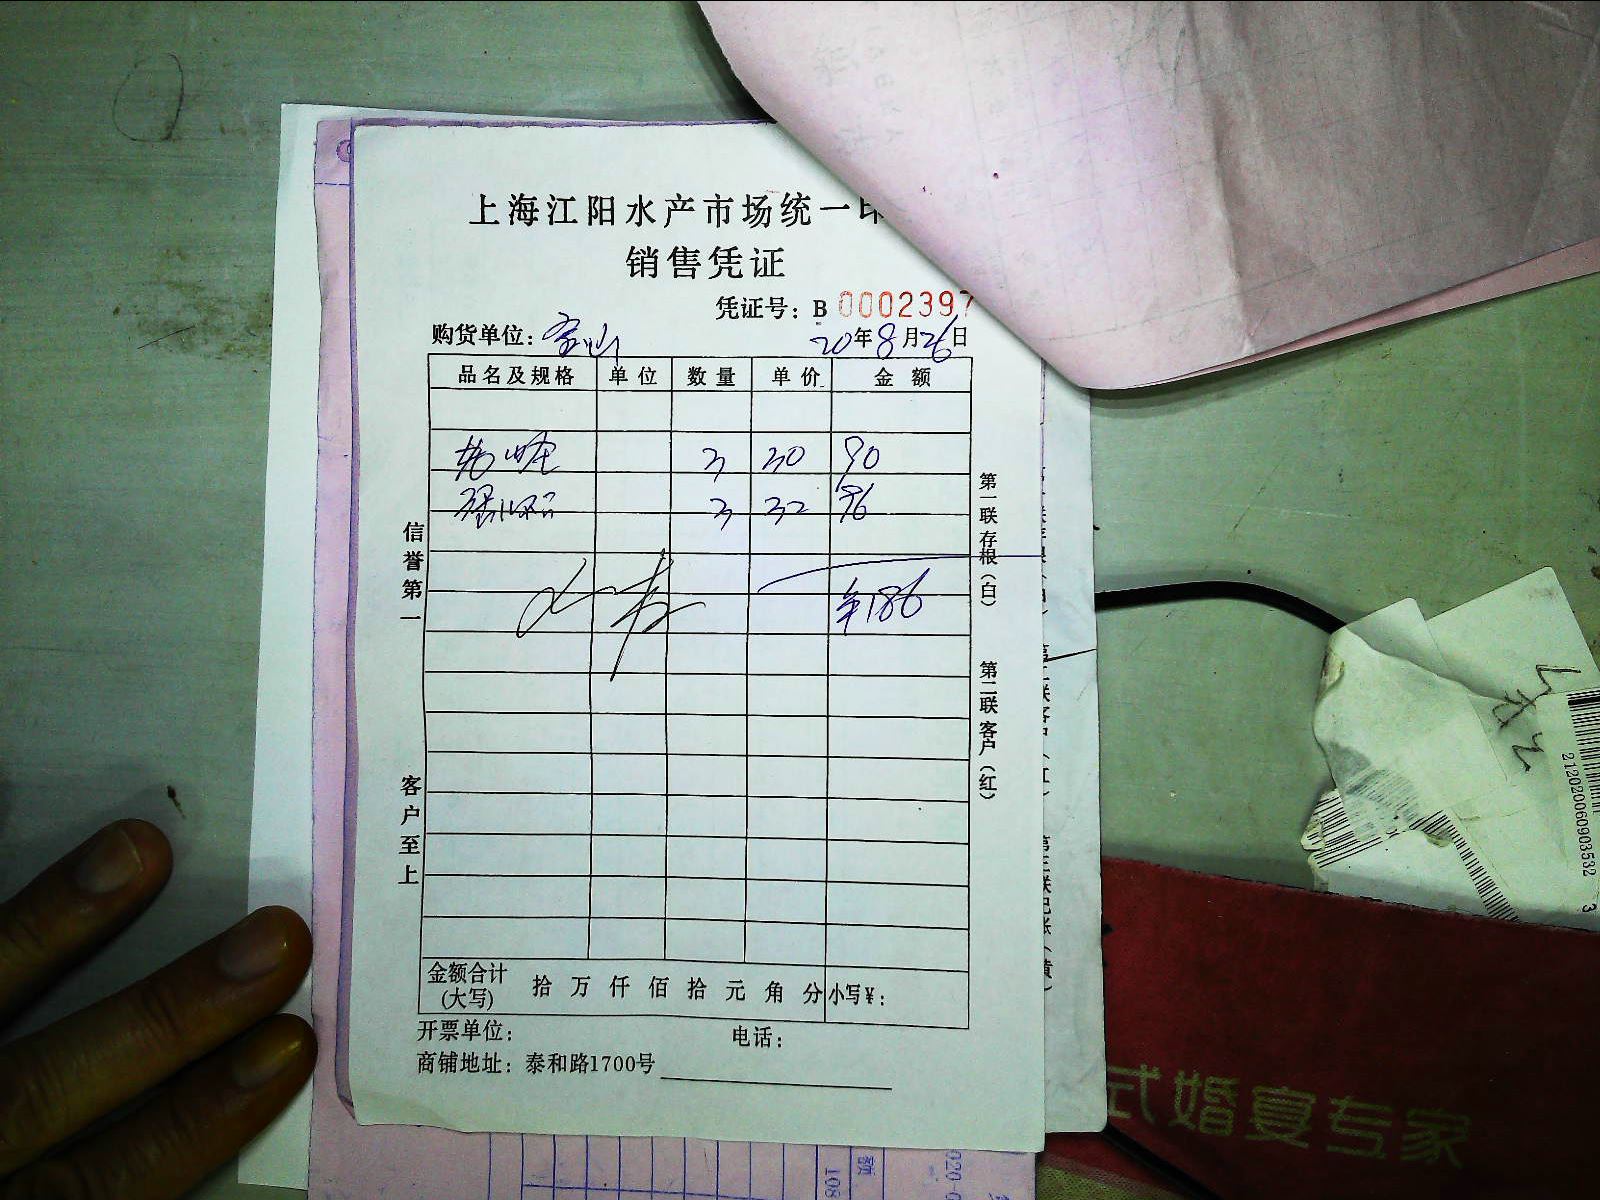 上海江阳水产市场统一印
销售凭证
凭证号：B 0002397
购货单位：宝山 20年8月26日
品名及规格 单位 数量 单价 金额
3 30 90
3 32 96
¥186
信誉第一
客户至上
第一联存根（白）
第二联客户（红）
金额合计（大写） 拾 万 仟 佰 拾 元 角 分 小写¥：
开票单位： 电话：
商铺地址：泰和路1700号
212020060903532 3
式婚宴专家
108